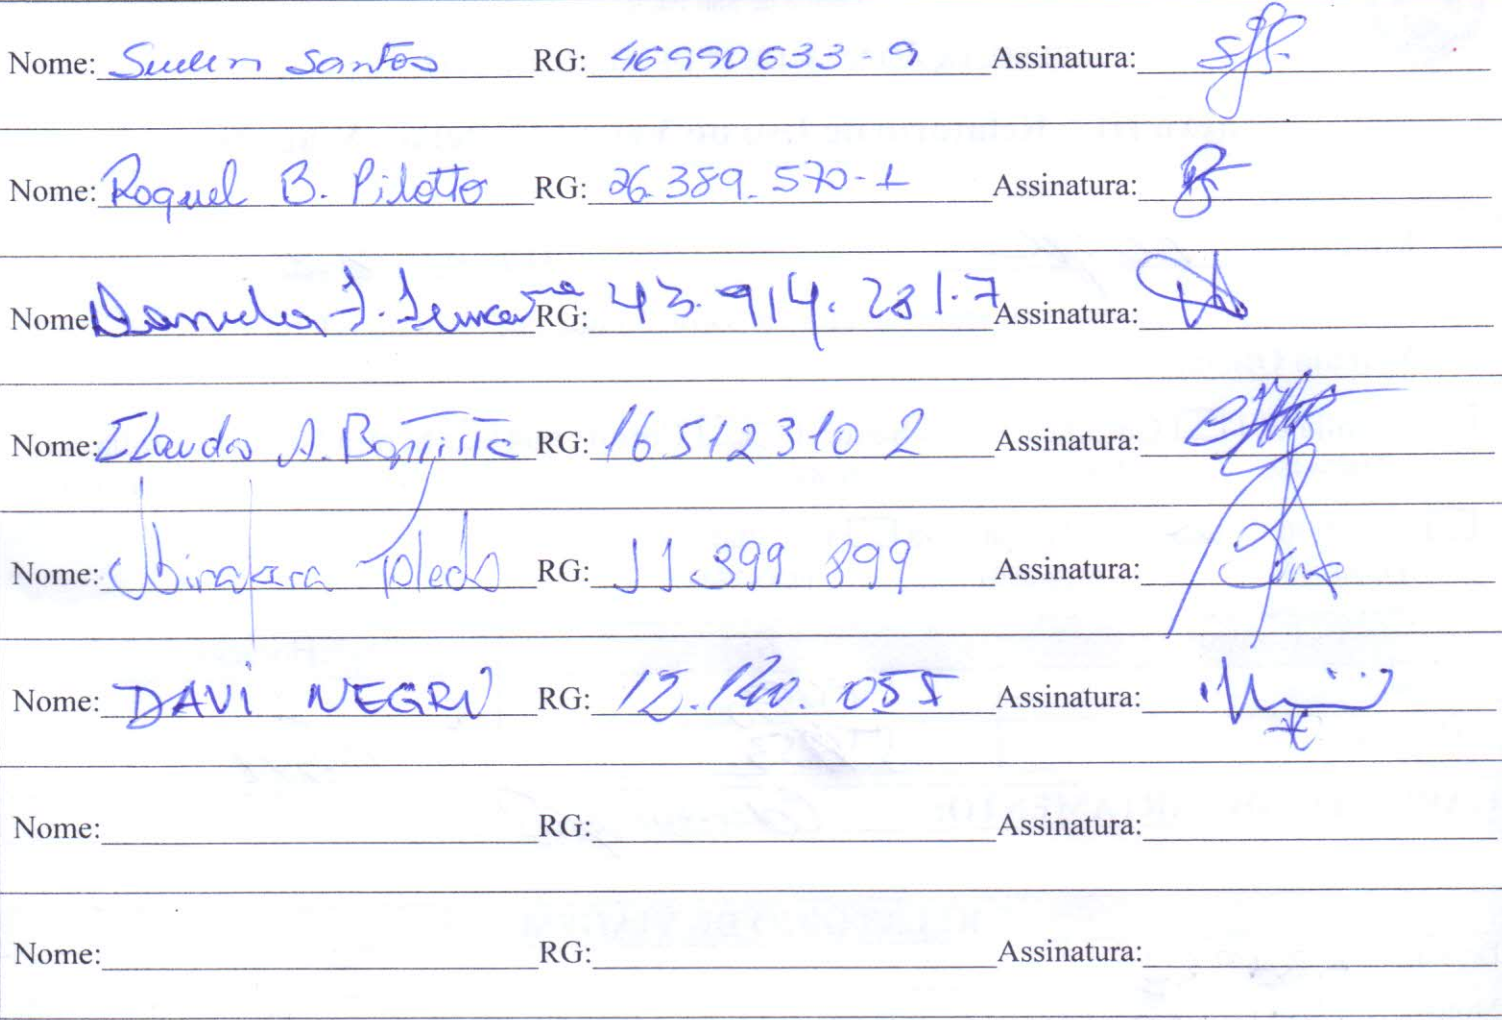 Nome: Suelen Santos RG: 46990633-9 Assinatura:
Nome: Raquel B. Pilotto RG: 26.389.570-1 Assinatura:
Nome: Daniela F. RG: 43.914.281-7 Assinatura:
Nome: A. Baptista RG: 16512310 2 Assinatura:
Nome: Toledo RG: 11.399 899 Assinatura:
Nome: DAVI NEGRI RG: 12.140.055 Assinatura:
Nome: RG: Assinatura:
Nome: RG: Assinatura: